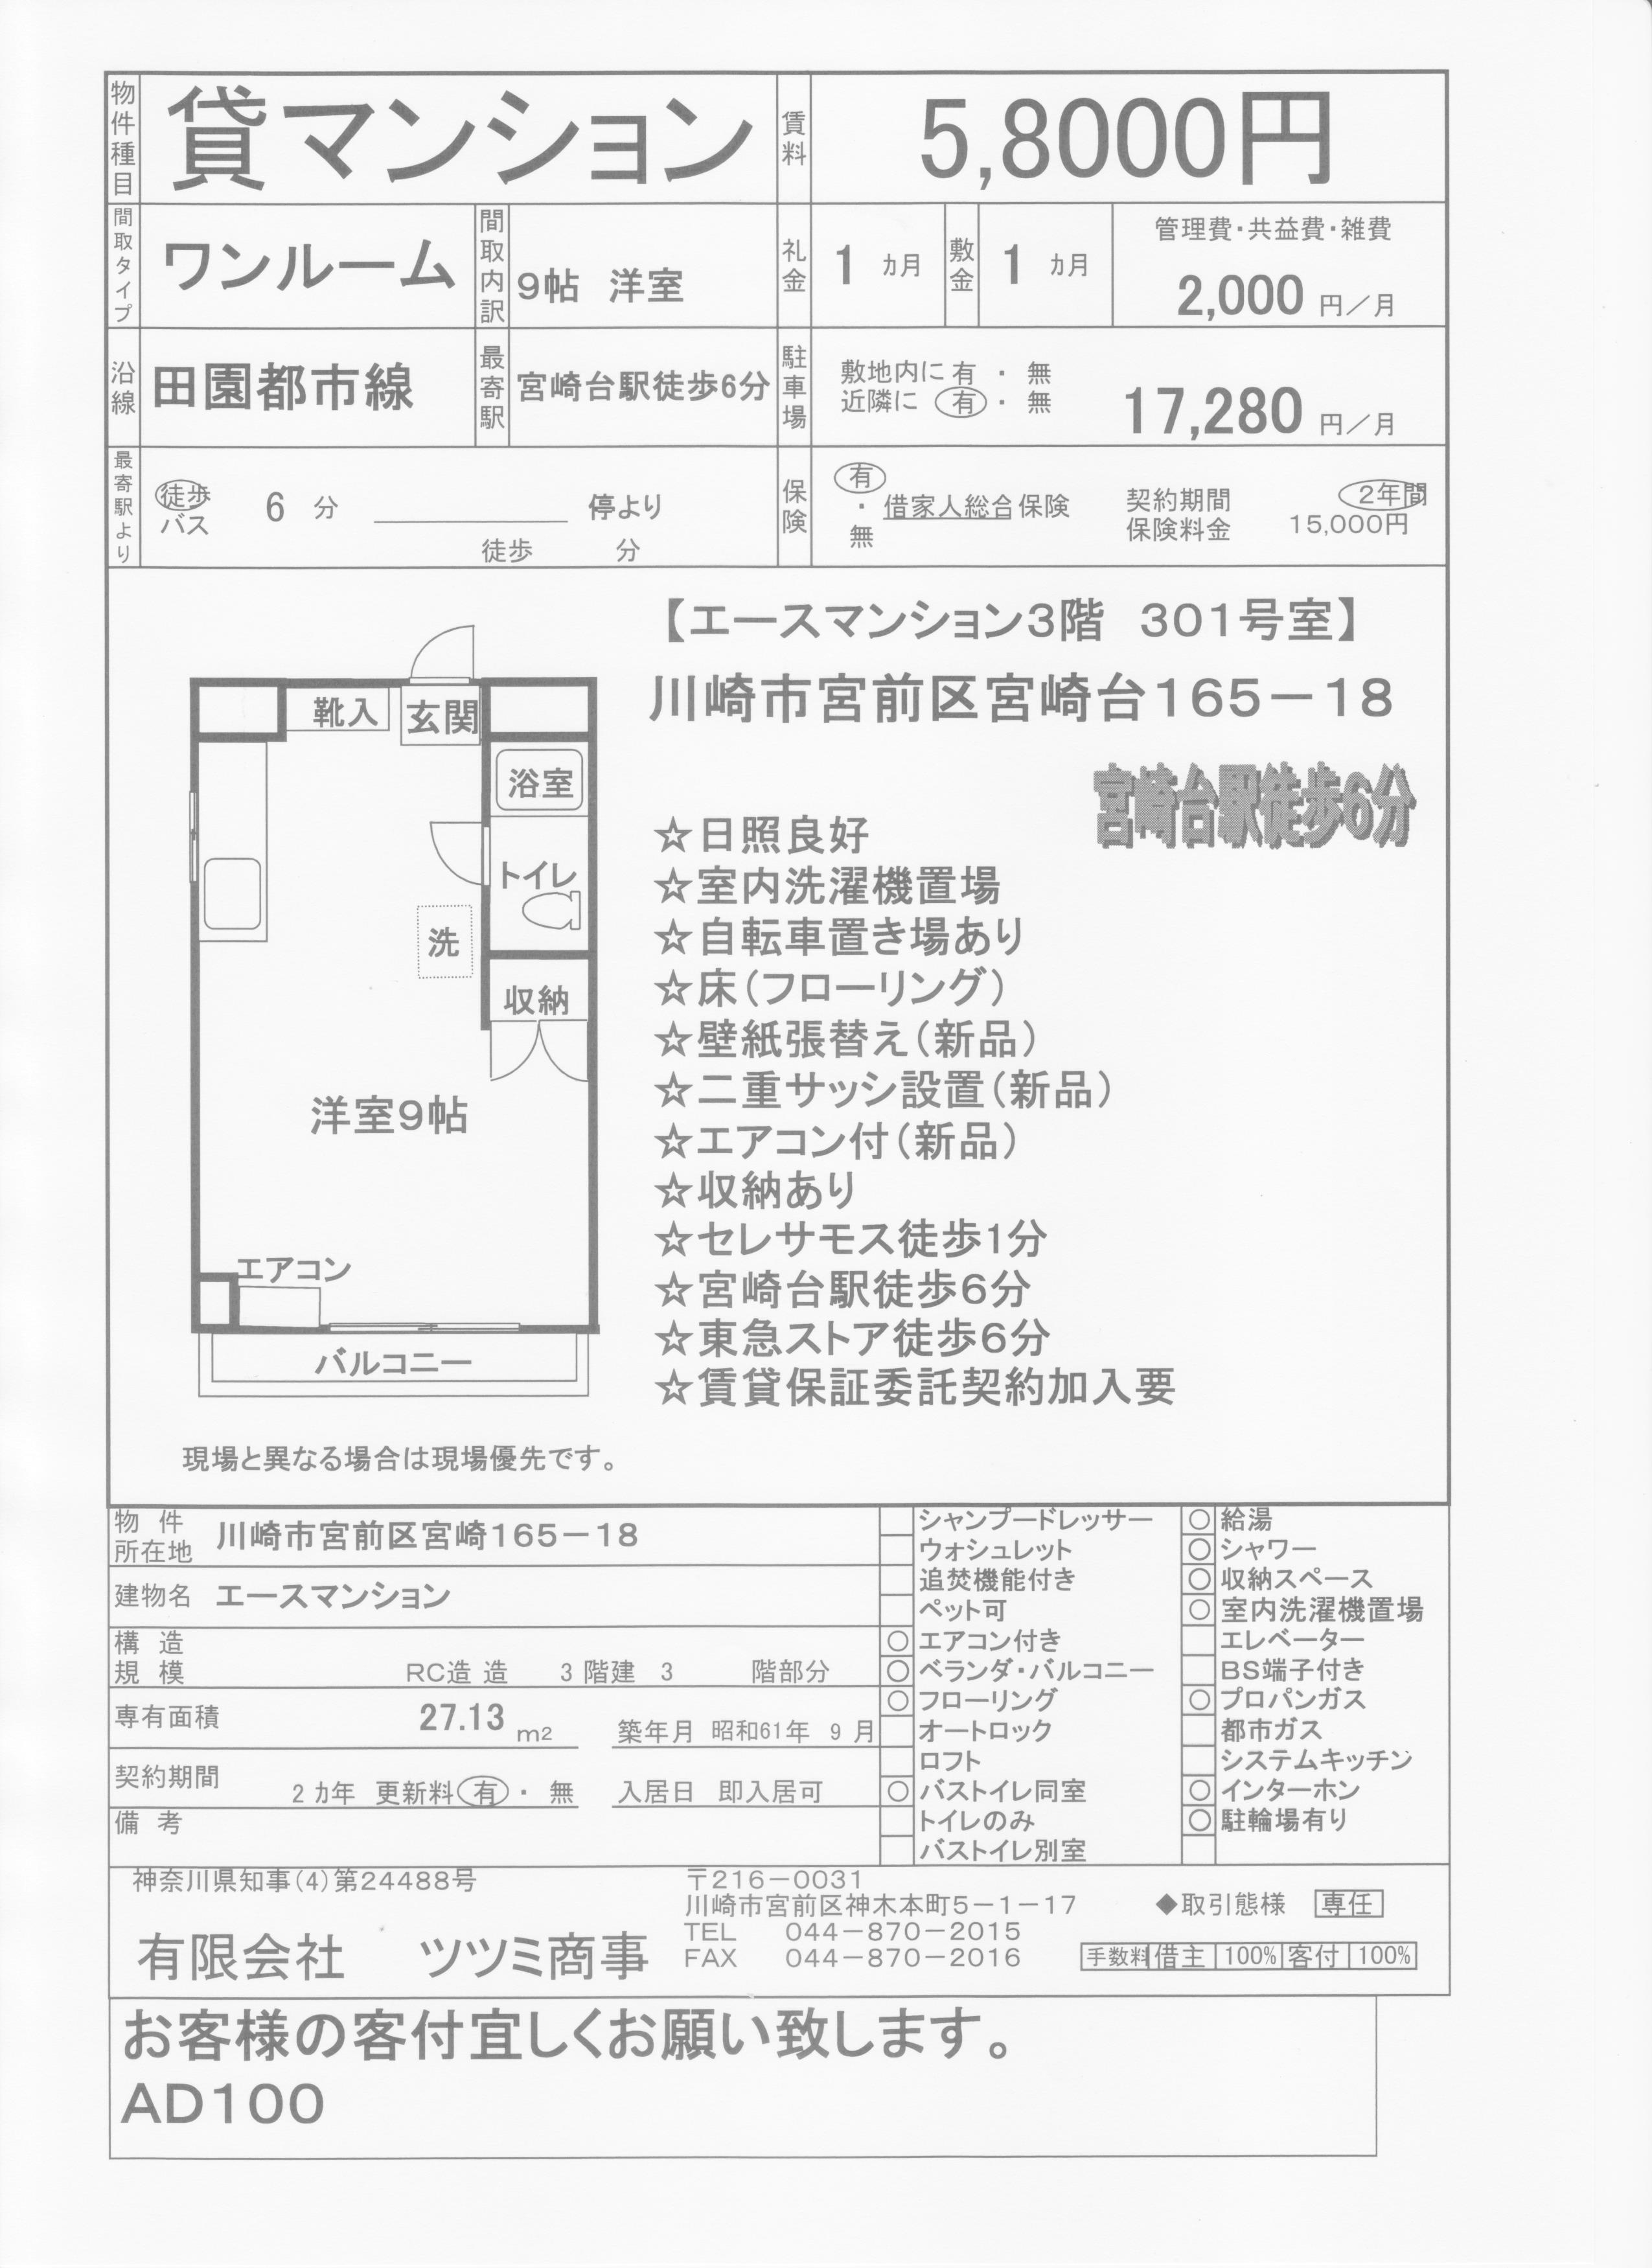 物件種目 貸マンション 賃料 5,8000円
間取タイプ ワンルーム 間取内訳 9帖 洋室 礼金 1 カ月 敷金 1 カ月 管理費・共益費・雑費
2,000 円／月
沿線 田園都市線 最寄駅 宮崎台駅徒歩6分 駐車場 敷地内に 有 ・ 無
近隣に 有 ・ 無 17,280 円／月
最寄駅より 徒歩 6 分 停より
バス
徒歩 分
保険 有 ・ 無 借家人総合保険 契約期間 2年間
保険料金 15,000円
【エースマンション3階 301号室】
川崎市宮前区宮崎台165－18
宮崎台駅徒歩6分
靴入 玄関
浴室
トイレ
洗
収納
洋室9帖
エアコン
バルコニー
☆日照良好
☆室内洗濯機置場
☆自転車置き場あり
☆床（フローリング）
☆壁紙張替え（新品）
☆二重サッシ設置（新品）
☆エアコン付（新品）
☆収納あり
☆セレサモス徒歩1分
☆宮崎台駅徒歩6分
☆東急ストア徒歩6分
☆賃貸保証委託契約加入要
現場と異なる場合は現場優先です。
物件所在地 川崎市宮前区宮崎165－18
建物名 エースマンション
構造規模 RC造 造 3 階建 3 階部分
専有面積 27.13 m2 築年月 昭和61年 9 月
契約期間 2 カ年 更新料 有 ・ 無 入居日 即入居可
備考
シャンプードレッサー ○ 給湯
ウォシュレット ○ シャワー
追焚機能付き ○ 収納スペース
ペット可 ○ 室内洗濯機置場
○ エアコン付き エレベーター
○ ベランダ・バルコニー BS端子付き
○ フローリング ○ プロパンガス
オートロック 都市ガス
ロフト システムキッチン
○ バストイレ同室 ○ インターホン
トイレのみ ○ 駐輪場有り
バストイレ別室
神奈川県知事(4)第24488号
有限会社 ツツミ商事
〒216－0031
川崎市宮前区神木本町5－1－17
TEL 044－870－2015
FAX 044－870－2016
◆取引態様 専任
手数料 借主 100% 客付 100%
お客様の客付宜しくお願い致します。
AD100